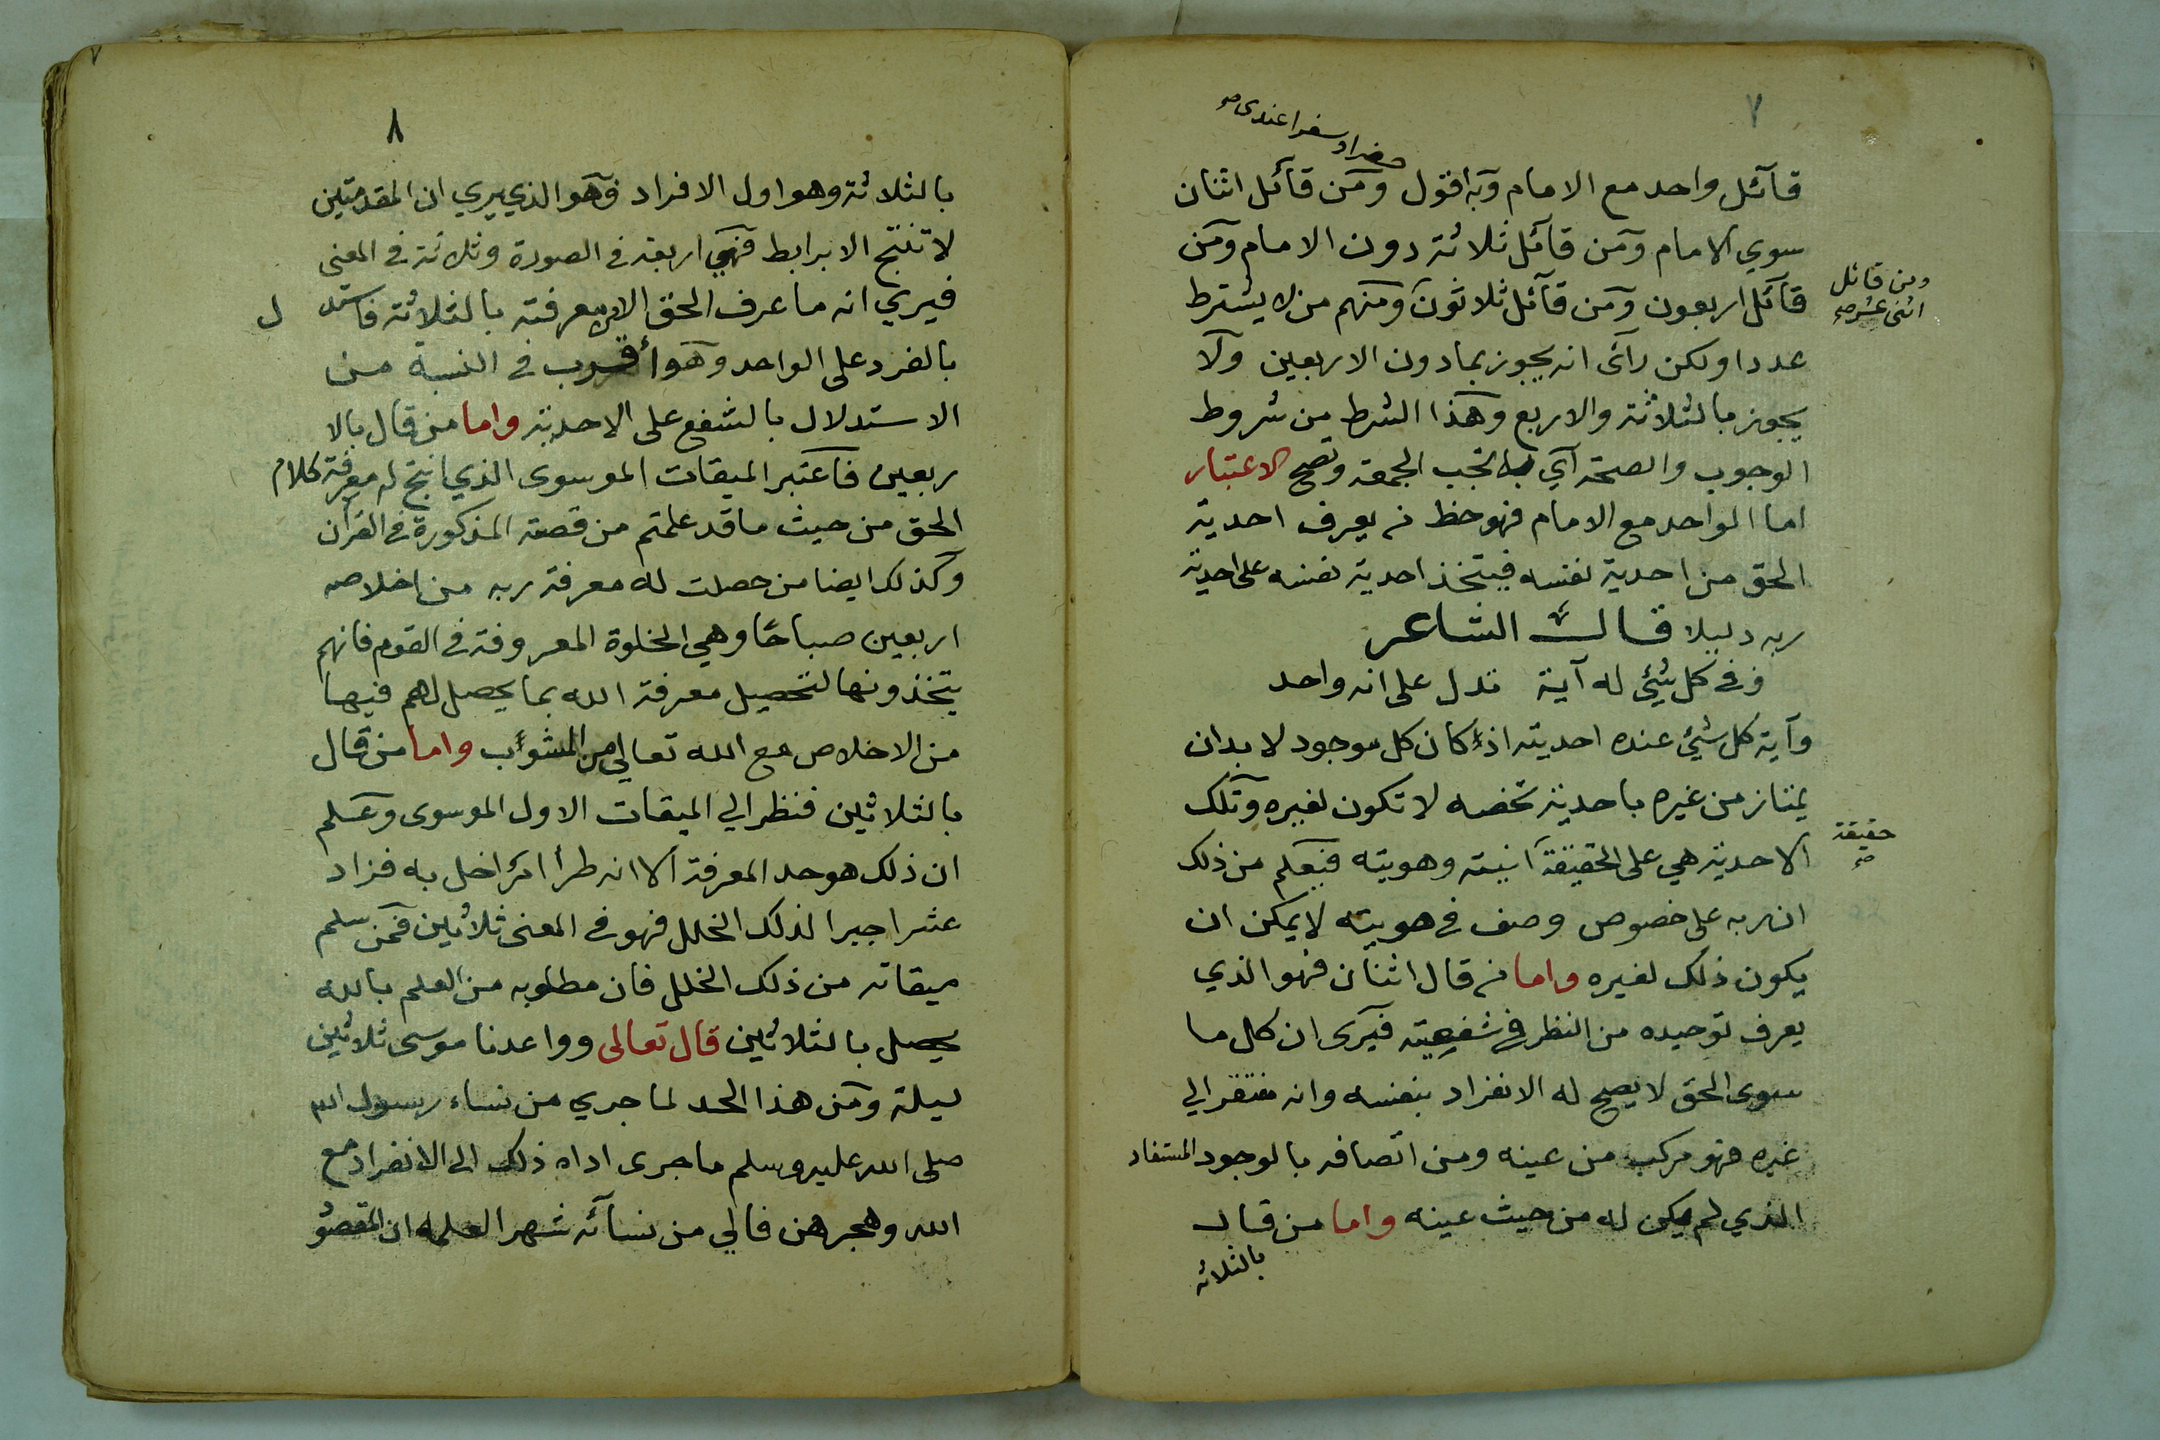 ٧
حضرا وسفرا عندي صح
قآئل واحد مع الامام وبه اقول ومن قآئل اثنان
سوي الامام ومن قآئل ثلاثة دون الامام ومن
قآئل اربعون ومن قآئل ثلاثون ومنهم من لا يشترط
ومن قائل
اثنى عشر صح
عددا ولكن رآى انه يجوز بمادون الاربعين ولا
يجوز بالثلاثة والاربع وهذا الشرط من شروط
الوجوب والصحة اي به تجب الجمعة وتصح الاعتبار
اما الواحد مع الامام فهو حظ من يعرف احدية
الحق من احدية نفسه فيتخذ احدية نفسه على احدية
ربه دليلا قال الشاعر
وفي كل شيئ له آية تدل على انه واحد
وآية كل شيئ عنده احديته اذ كان كل موجود لا بد ان
يمتاز من غيره باحدية تخصه لا تكون لغيره وتلك
الاحدية هي على الحقيقة آنيته وهويته فيعلم من ذلك
حقيقة
صح
ان ربه على خصوص وصف في هويته لا يمكن ان
يكون ذلك لغيره واما من قال اثنان فهو الذي
يعرف توحيده من النظر في شفعيته فيرى ان كل ما
سوى الحق لا يصح له الانفراد بنفسه وانه مفتقر الي
غيره فهو مركب من عينه ومن اتصافه بالوجود المستفاد
الذي لم يكن له من حيث عينه واما من قال
بالثلاثه
٨
بالثلاثة وهو اول الافراد وهو الذي يري ان المقدمتين
لا تنتج الا برابط فهي اربعة في الصورة وثلاثة في المعنى
فيري انه ما عرف الحق الا من معرفته بالثلاثة فاستدل
بالفرد على الواحد وهو أقرب في النسبة من
الاستدلال بالشفع على الاحدية واما من قال بالا
ربعين فاعتبر الميقات الموسوى الذي انتج له معرفة كلام
الحق من حيث ما قد علمتم من قصته المذكورة في القرآن
وكذلك ايضا من حصلت له معرفة ربه من اخلاصه
اربعين صباحًا وهي الخلوة المعروفة في القوم فانهم
يتخذونها لتحصيل معرفة الله بما يحصل لهم فيها
من الاخلاص مع الله تعالي من الشوآب واما من قال
بالثلاثين فنظر الي الميقات الاول الموسوى وعلم
ان ذلك هو حد المعرفة ألا انه طرأ امر اخل به فزاد
عشرا جبرا لذلك الخلل فهو في المعنى ثلاثين فمن سلم
ميقاته من ذلك الخلل فان مطلوبه من العلم بالله
يحصل بالثلاثين قال تعالى وواعدنا موسى ثلاثين
ليلة ومن هذا الحد لما جري من نساء رسول الله
صلى الله عليه وسلم ما جرى اداه ذلك الى الانفراد مع
الله وهجرهن فالي من نسآئه شهرا لعلمه ان المقصو